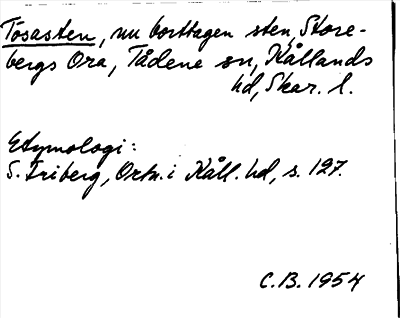 Tosasten, nu borttagen sten, Store-
bergs Ora, Tådene sn, Kållands
hd, Skar. l.
Etymologi:
S. Friberg, Ortn. i Kåll. hd, s. 127.
C.B. 1954